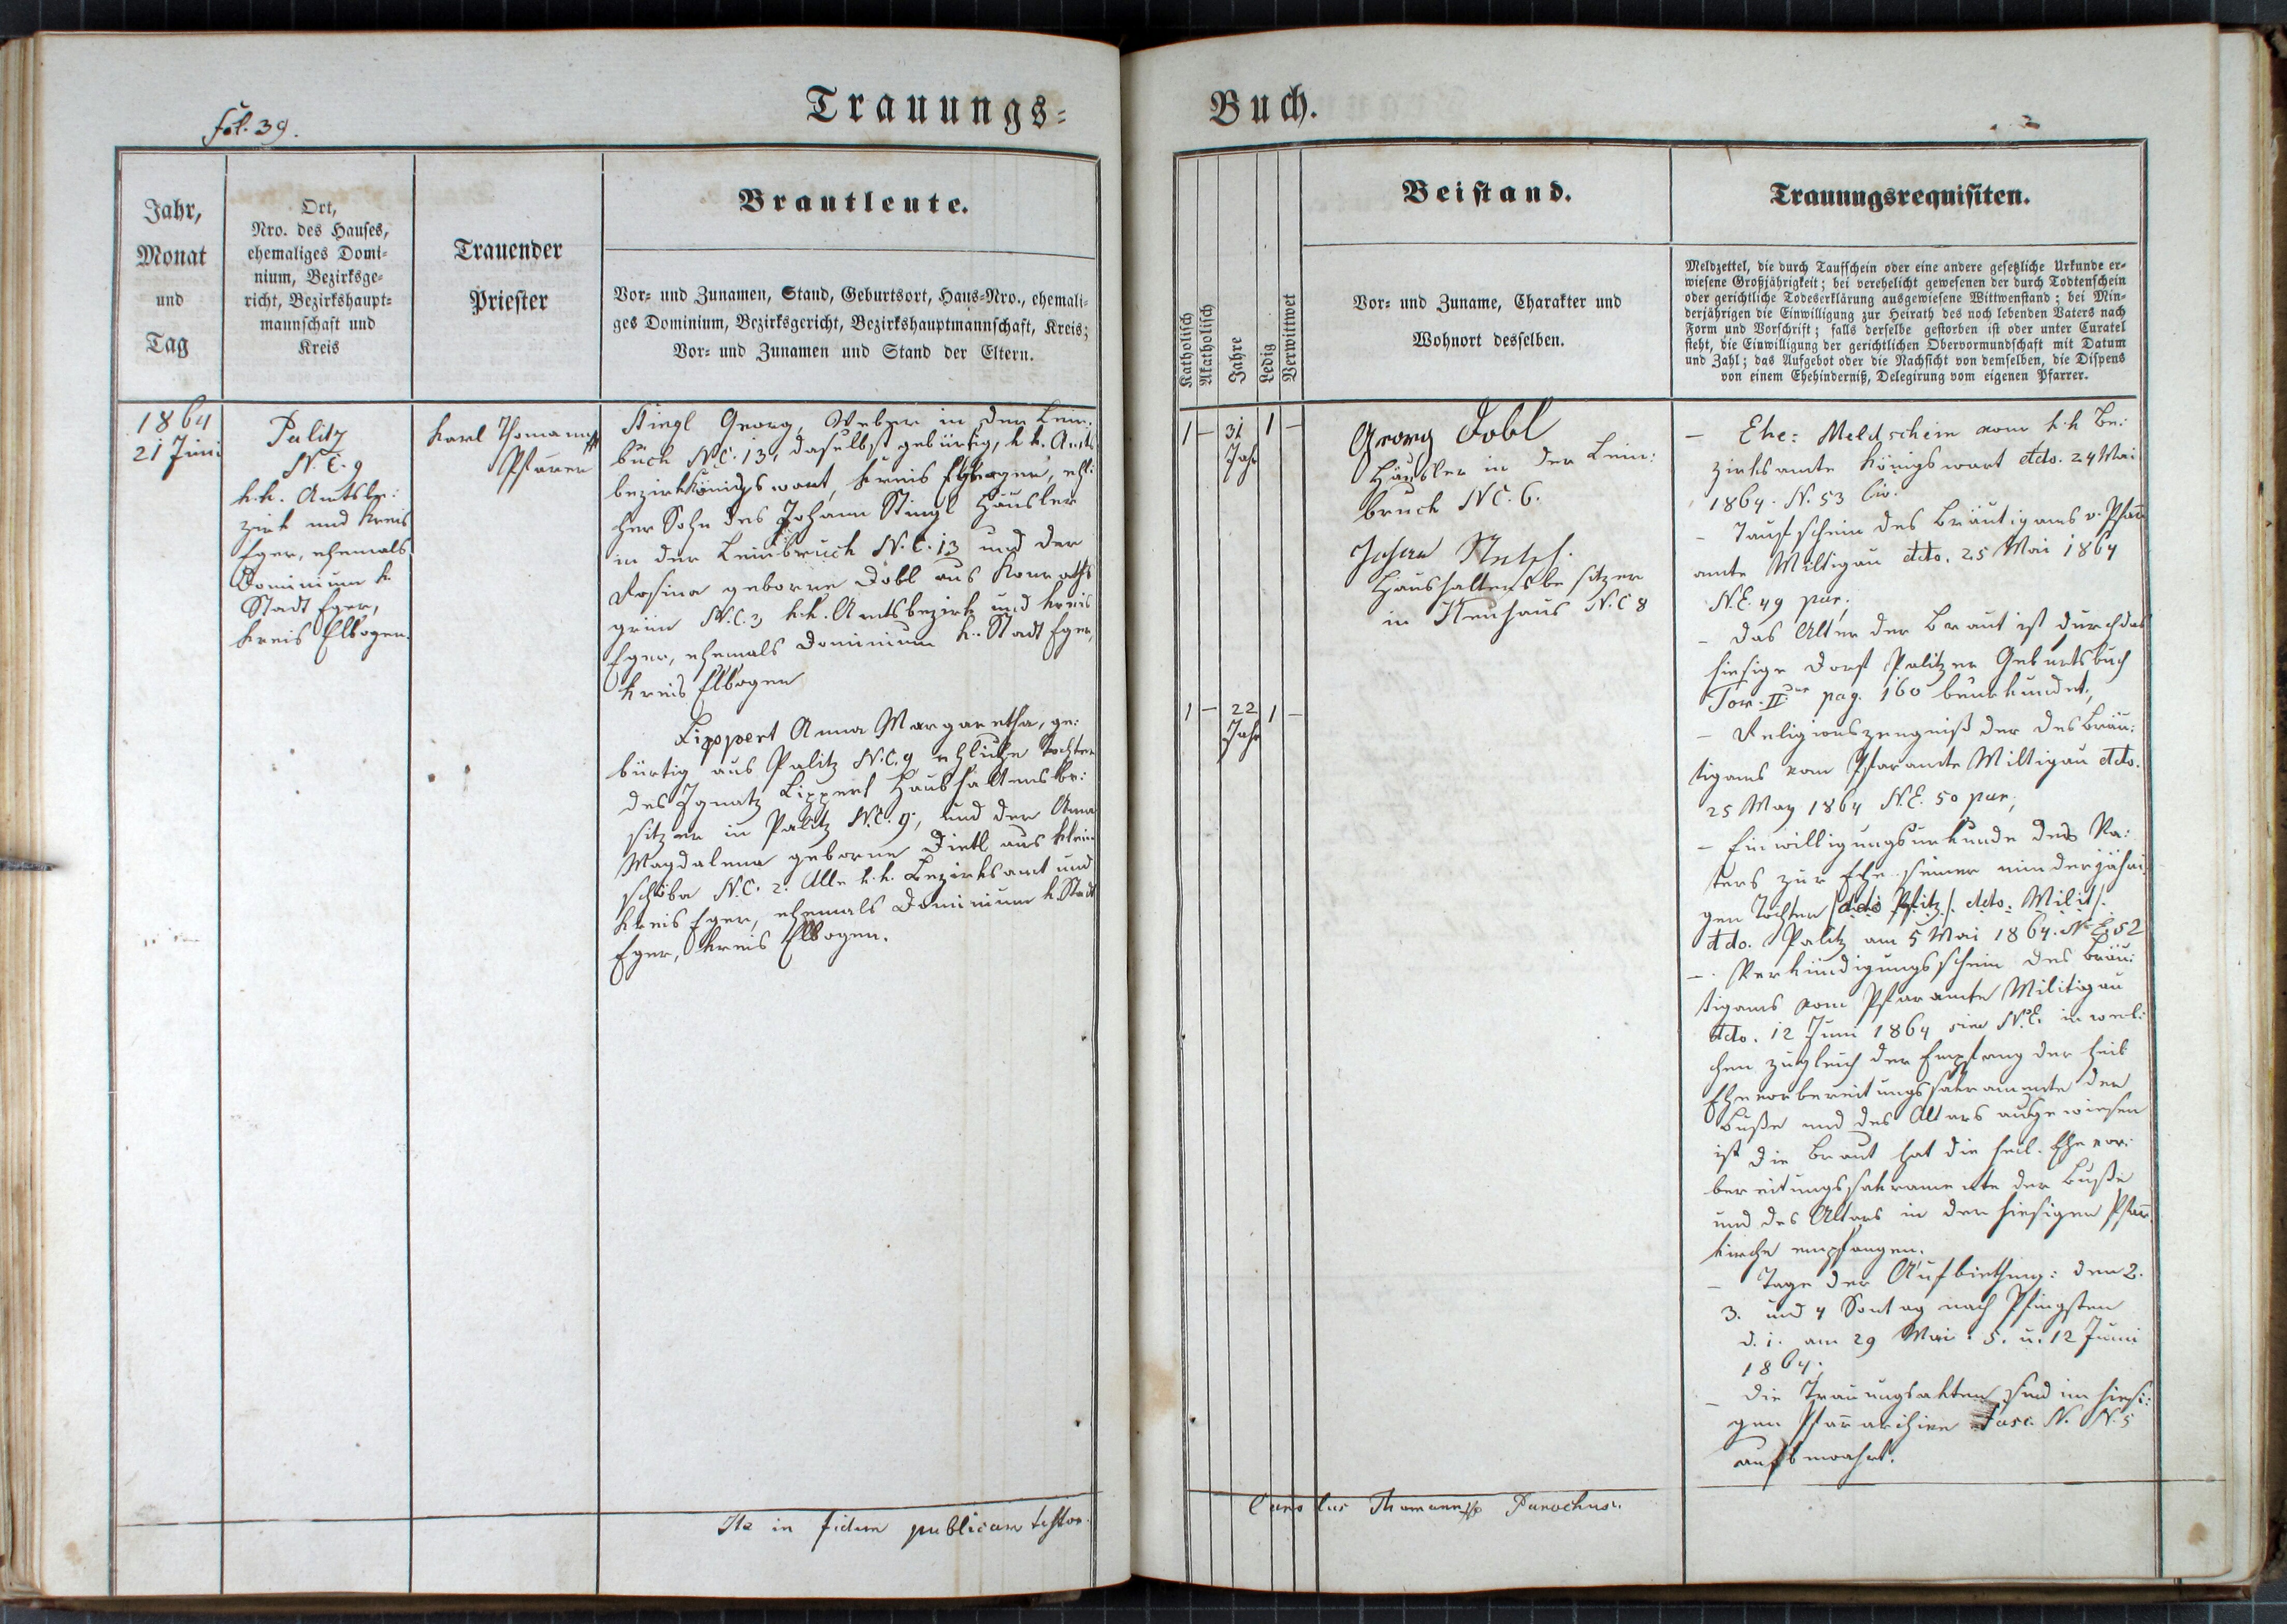 fol. 39.
Trauungs-
Buch.
Jahr,
Monat
und
Tag
Ort,
Nro. des Hauses,
ehemaliges Domi-
nium, Bezirksge-
richt, Bezirkshaupt-
mannschaft und
Kreis
Trauender
Priester
Brautleute.
Vor- und Zunamen, Stand, Geburtsort, Haus-Nro., ehemali-
ges Dominium, Bezirksgericht, Bezirkshauptmannschaft, Kreis;
Vor- und Zunamen und Stand der Eltern.
Katholisch
Akatholisch
Jahre
Ledig
Verwittwet
Beistand.
Vor- und Zuname, Charakter und
Wohnort desselben.
Trauungsrequisiten.
Meldzettel, die durch Taufschein oder eine andere gesetzliche Urkunde er-
wiesene Großjährigkeit; bei verehelicht gewesenen der durch Todtenschein
oder gerichtliche Todeserklärung ausgewiesene Wittwenstand; bei Min-
derjährigen die Einwilligung zur Heirath des noch lebenden Vaters nach
Form und Vorschrift; falls derselbe gestorben ist oder unter Curatel
steht, die Einwilligung der gerichtlichen Obervormundschaft mit Datum
und Zahl; das Aufgebot oder die Nachsicht von demselben, die Dispens
von einem Ehehinderniß, Delegirung vom eigenen Pfarrer.
1864
21 Juni
Palitz
N.C. 9
k.k. Amtsbe:
zirk und Kreis
Eger, ehemals
Dominium k.
Stadt Eger,
Kreis Elbogen.
Karl Thomann
Pfarrer
Stingl Georg, Weber in der Lein:
bruch N.C. 13, daselbst gebürtig, k.k. Amts
bezirk Königswart, Kreis Eger, ehli:
cher Sohn des Johann Stingl Häusler
in der Leinbruch N.C. 13 und der
Rosina geborne Dobl aus Konraths
grün N.C. 3 k.k. Amtsbezirk und Kreis
Eger, ehemals Dominium k. Stadt Eger,
Kreis Elbogen
Lippert Anna Margaretha, ge:
bürtig aus Palitz N.C. 9 ehliche Tochter
des Ignatz Lippert Haushaltensbe:
sitzer in Palitz N.C. 9, und der Anna
Magdalena geborne Dietl aus Klein
schöba N.C. 2. Alle k.k. Bezirksamt und
Kreis Eger, ehemals Dominium k. Stadt
Eger, Kreis Elbogen.
1 — 31 Jahr 1 —
1 — 22 Jahr 1 —
Georg Dobl
Häusler in der Lein:
bruch NC. 6.
Johann
Haushaltensbesitzer
in Neuhaus N.C 8
— Ehe: Meldschein vom k.k Be:
zirksamte Königswart ddo. 24 Mai
1864. N. 53 Civ.
— Taufschein des Bräutigams v. Pfarr
amte Miltigau ddo. 25 Mai 1864
N.E. 49 par;
— das Alter der Braut ist durch das
hiesige Dorf Palitzer Geburtsbuch
Tom. II. pag. 160 beurkundet;
— Religionszeugniß der des Bräu:
tigams vom Pfaramte Miltigau ddo.
25 May 1864 N.E. 50 par;
— Einwilligungsurkunde des Va:
ters zur Ehe seiner minderjähri
gen Tochter
ddo. Palitz am 5 Mai 1864. N.E. 52
— Verkündigungsschein des Bräu:
tigams vom Pfaramte Militigau
ddo. 12 Juni 1864 sine N.E. in wel:
chen zugleich der Empfang der heil
Ehevorbereitungssakramente der
Buße und des Altars ausgewiesen
ist die Braut hat die heil. Ehevor:
bereitungssakramente der Buße
und des Altars in der hiesigen Pfarr
kirche empfangen.
— Tage der Aufbiethung: den 2.
3. und 4 Sontag nach Pfingsten
d. i. am 29 Mai. 5. u. 12 Juni
1864;
— die Trauungsakten sind im hiesi:
gen Pfararchive Fasc. N. N. 5
aufbewahrt.
Ita in fidem publicam testor.
Carolus Thomann Parochus.